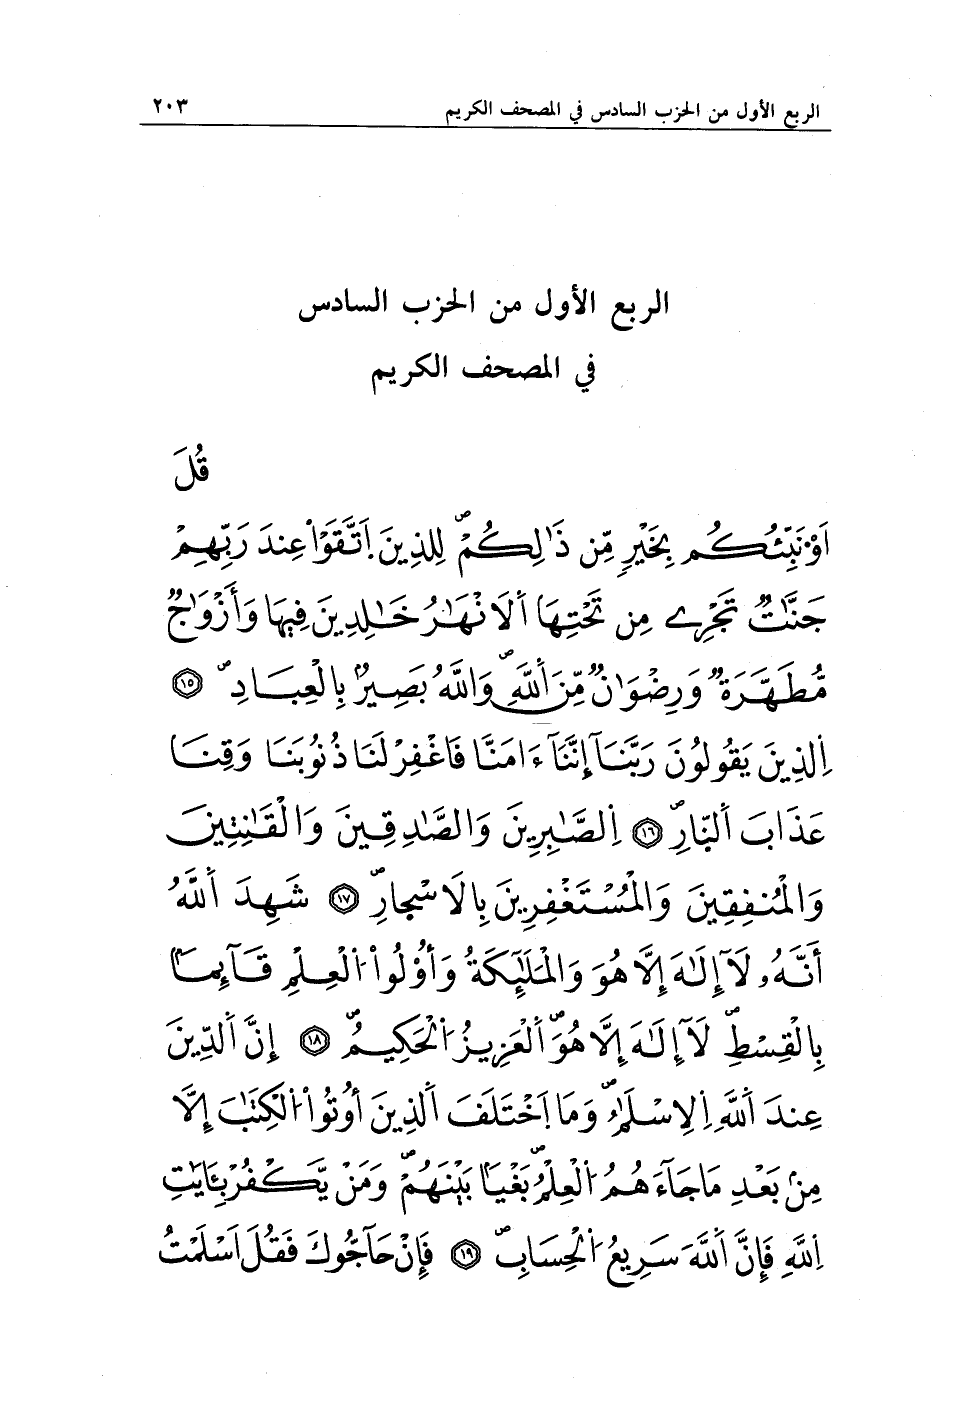 الربع الأول من الحزب السادس في المصحف الكريم ٢٠٣
الربع الأول من الحزب السادس
في المصحف الكريم
قُلَ
اَوْ۬نَبِّئُكُم بِخَيْرٍ مِّن ذَٰلِكُمْ لِلذِينَ اَتَّقَوْاْ عِندَ رَبِّهِمْ
جَنَّٰتٌ تَجْرِے مِن تَحْتِهَا اَ۬لَانْهَٰرُ خَٰلِدِينَ فِيهَا وَأَزْوَٰجٌ
مُّطَهَّرَةٌ وَرِضْوَٰنٌ مِّنَ اَ۬للَّهِ وَاللَّهُ بَصِيرٌۢ بِالْعِبَادِ ١٥
اِ۬لذِينَ يَقُولُونَ رَبَّنَآ إِنَّنَآ ءَامَنَّا فَاغْفِرْ لَنَا ذُنُوبَنَا وَقِنَا
عَذَابَ اَ۬لنّ۪ارِ ١٦ اِ۬لصَّٰبِرِينَ وَالصَّٰدِقِينَ وَالْقَٰنِتِينَ
وَالْمُنفِقِينَ وَالْمُسْتَغْفِرِينَ بِالَاسْح۪ارِ ١٧ شَهِدَ اَ۬للَّهُ
أَنَّهُۥ لَآ إِلَٰهَ إِلَّا هُوَ وَالْمَلَٰٓئِكَةُ وَأُوْلُواْ اُ۬لْعِلْمِ قَآئِماَۢ
بِالْقِسْطِ لَآ إِلَٰهَ إِلَّا هُوَ اَ۬لْعَزِيزُ اُ۬لْحَكِيمُ ١٨ إِنَّ اَ۬لدِّينَ
عِندَ اَ۬للَّهِ اِ۬لِاسْلَٰمُ وَمَا اَ۪خْتَلَفَ اَ۬لذِينَ أُوتُواْ اُ۬لْكِتَٰبَ إِلَّا
مِنۢ بَعْدِ مَا جَآءَهُمُ اُ۬لْعِلْمُ بَغْياَۢ بَيْنَهُمْ وَمَنْ يَّكْفُرْ بِـَٔايَٰتِ
اِ۬للَّهِ فَإِنَّ اَ۬للَّهَ سَرِيعُ اُ۬لْحِسَابِ ١٩ فَإِنْ حَآجُّوكَ فَقُلَ اَسْلَمْتُ